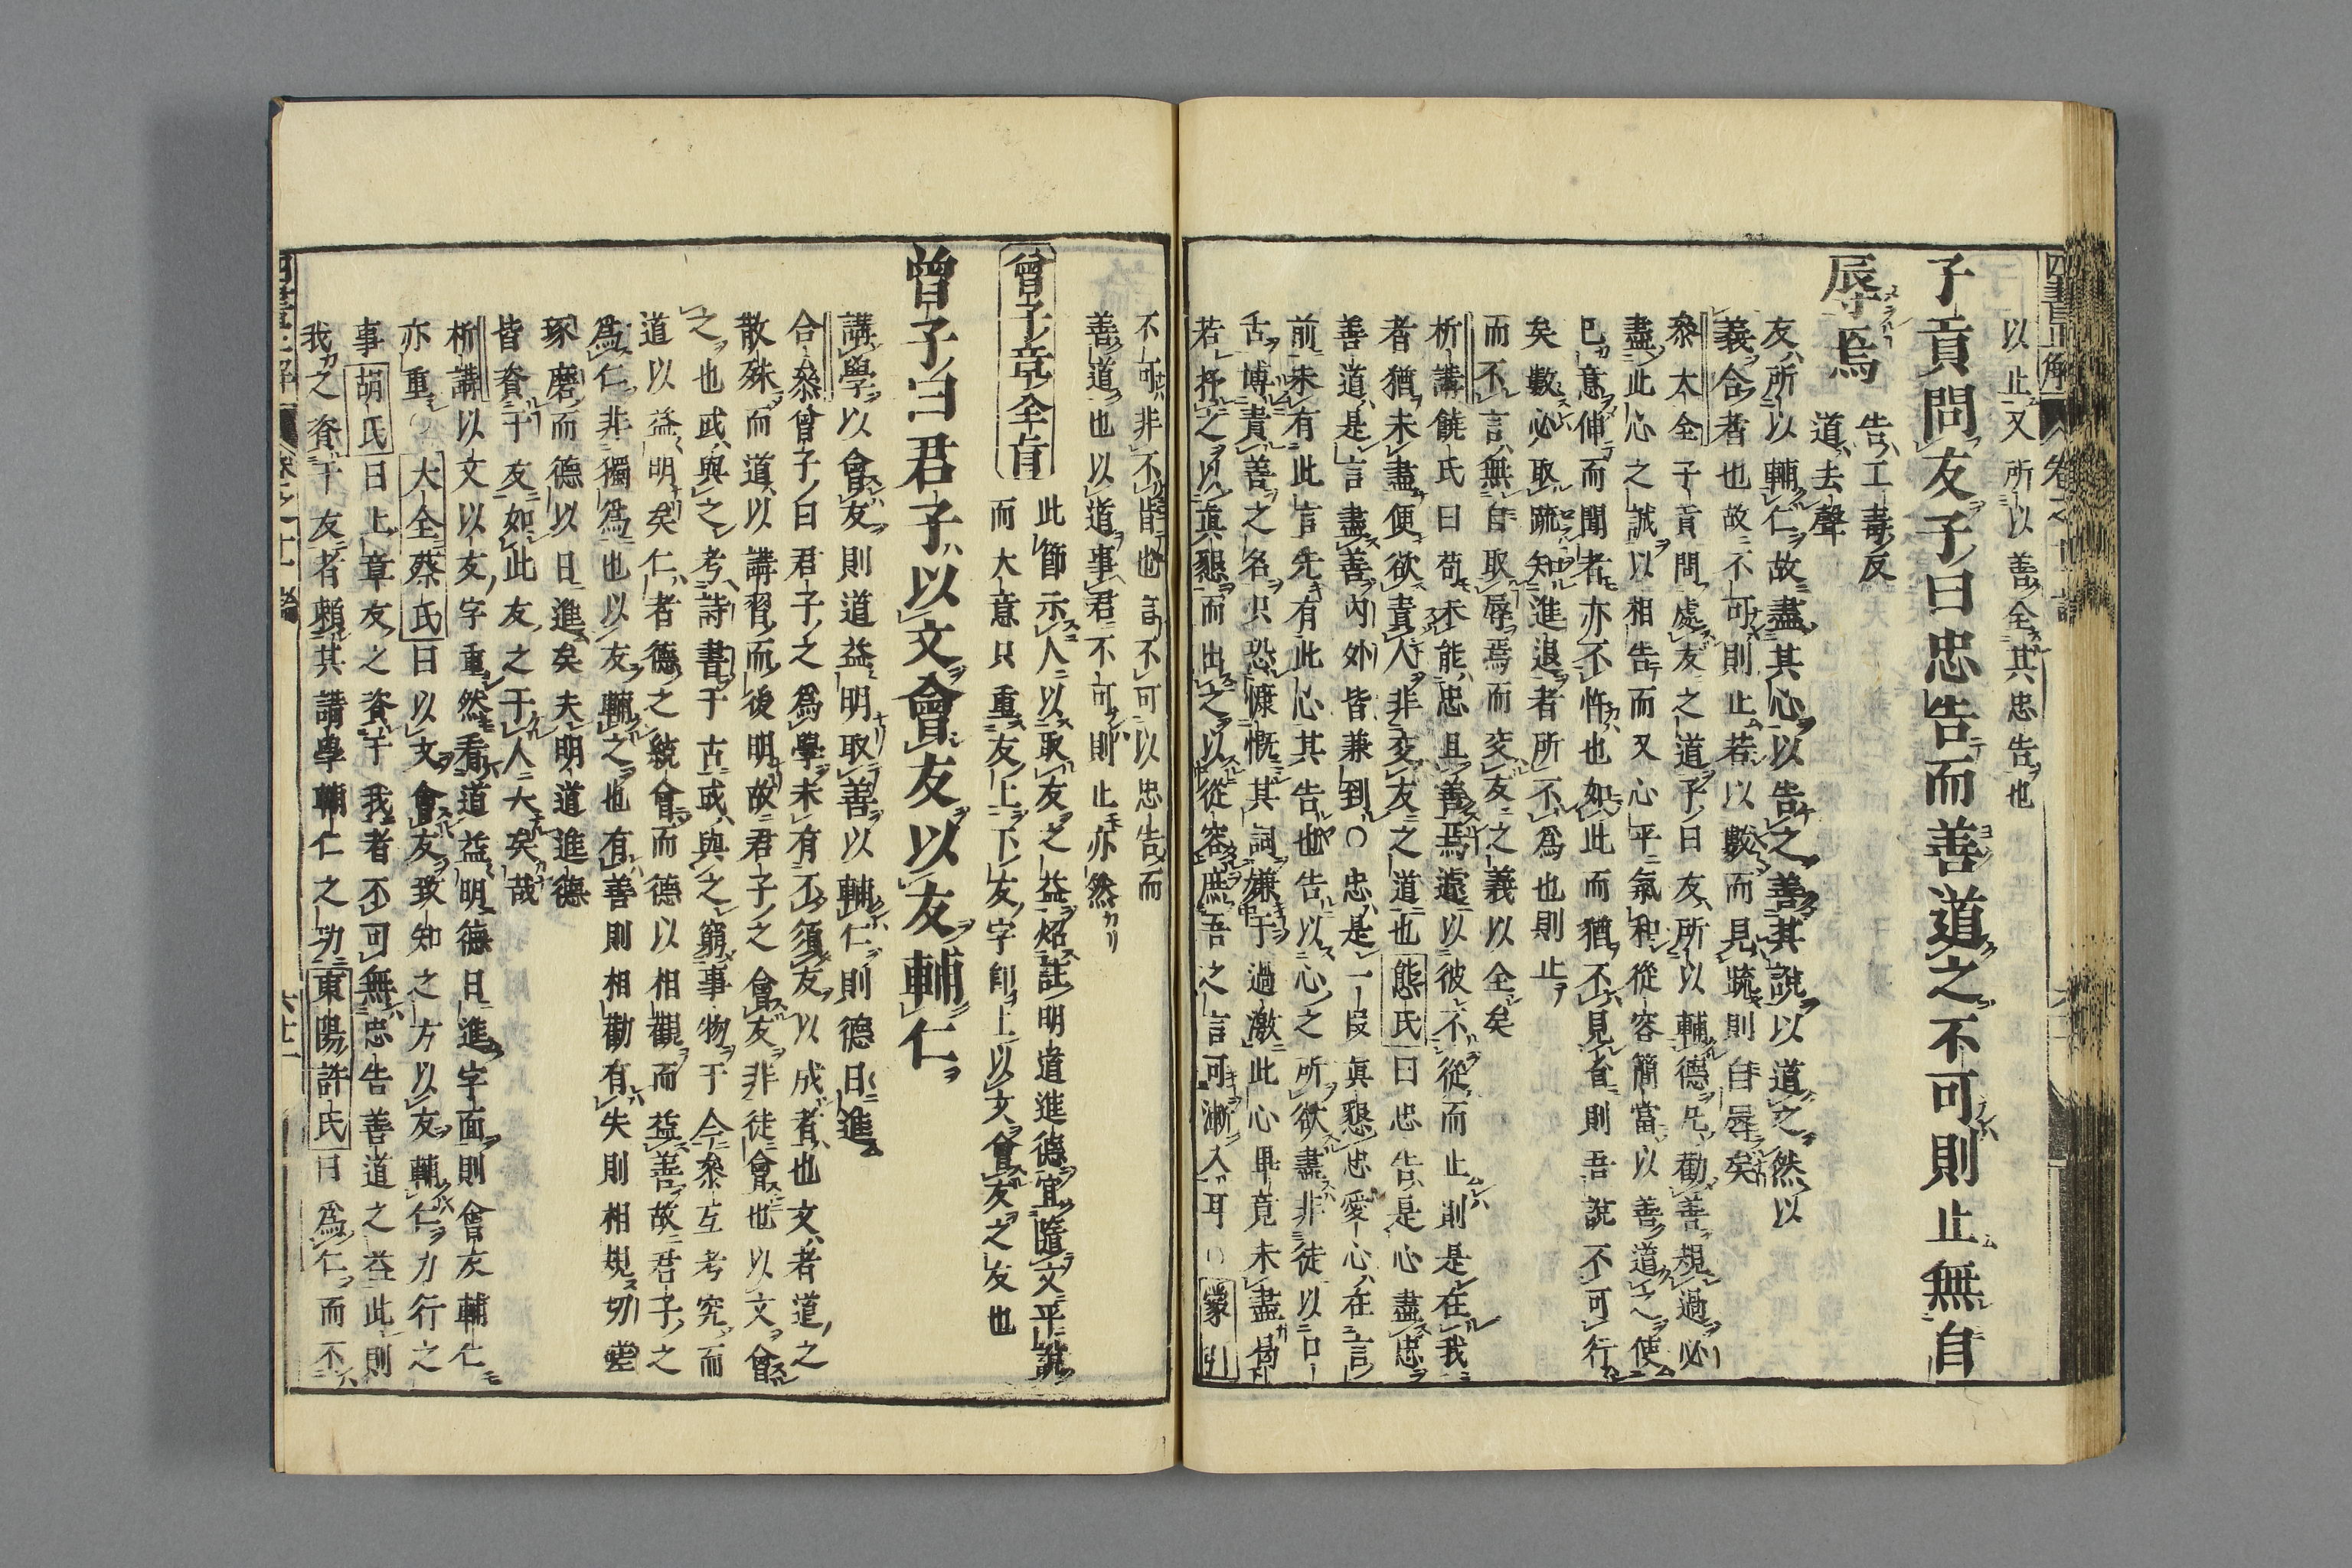 以止又所以善全其忠告也
子貢問友子曰忠告而善道之不可則止無自
辱焉
告工毒反
道去聲
友所以輔仁故盡其心以告之善其說以道之然以
義合者也故不可則止若以數而見疏則自辱矣
參大全子貢問處友之道子曰友所以輔德凡勸善規過必
盡此心之誠以相告而又心平氣和從容簡當以善道之使
已意伸而聞者亦不忤也如此而猶不見省則吾說不可行
矣數必取疏知進退者所不為也則止
而不言無自取辱焉而交友之義以全矣
析講饒氏曰苟未能忠且善焉遽以彼不從而止則是在我
者猶未盡便欲責人非交友之道也熊氏曰忠告是心盡忠
善道是言盡善內外皆兼到○忠是一段真懇忠愛心在言
前未有此言先有此心其告也告以心之所欲盡非徒以口
舌博責善之名只恐慷慨其詞嫌于過激此心畢竟未盡
若抒之以真懇而出之以從容庶吾之言可漸入耳○蒙引
不可非不皆也言不可以忠告而
善道也以道事君不可則止亦然
曾子章全旨
此節示人以取友之益炤註明道進德宜隨文平說
而大意只重友上下友字即上以文會友之友也
曾子曰君子以文會友以友輔仁
講學以會友則道益明取善以輔仁則德日進
合參曾子曰君子之為學未有不須友以成者也文者道之
散殊而道以講習而後明故君子之會友非徒會也以文會
之也或與之考詩書于古或與之窮事物于今參互考究而
道以益明矣仁者德之統會而德以相觀而益善故君子之
為仁非獨為也以友輔之也有善則相勸有失則相規切磋
琢磨而德以日進矣夫明道進德
皆資于友如此友之于人大矣哉
析講以文以友字重然看道益明德日進字面則會友輔仁
亦重○大全蔡氏曰以文會友致知之方以友輔仁力行之
事胡氏曰上章友之資于我者不可無忠告善道之益此則
我之資于友者賴其講學輔仁之功東陽許氏曰為仁而不